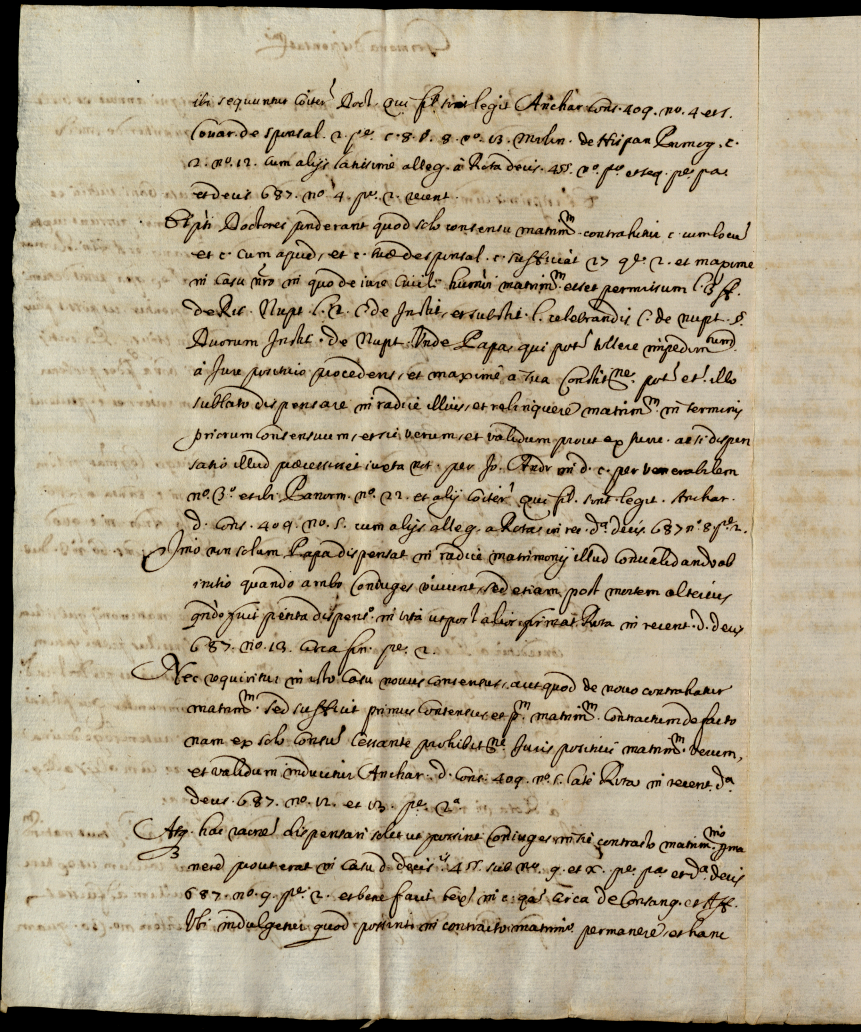 ibi sequuntur coiter Doct. qui legit Anchar. cons. 409. no. 4 et 5.
Couar. de sponsal. 2. pe. c. 8. §. 8. no. 13. Molin. de Hispan. Primog. c.
2. no. 12. cum alijs latissime alleg. à Rota decis. 455. no. po. et seq. pe. pa.
et decis 687. no. 4. pe. 2. recent.
Doctores ponderant quod solo consensu matrimm. contrahitur c. cum locũ
et c. cum apud, et c. tuæ de sponsal. c. sufficiat 27 qe. 2. et maxime
in casu nro in quo de iure Ciuili matrimm. esset permissum l.
de Rit. Nupt. de Instit. et substit. l. celebrandis C. de nupt. §.
Duorum Instit. de Nupt. Unde Papa, qui pot tollere impedimtum
à Jure positiuo procedens, et maximè a sua Constitne. pot et illo
sublato dispensare in radice illius, et relinquere matrimm. in terminis
priorum consensuum, et sic verum, et validum prout ex Jure. ac si dispen
satio illud præcessisset iuxta not. per Jo. Andr. in d. c. per venerabilem
no. 3o. et ibi Panorm. no. 22. et alij coiter qui legit. Anchar.
d. cons. 409. no. 5. cum alijs alleg. a Rota in rec. da. decis. 687 no. 8 pe. 2.
Imo non solum Papa dispensat in radice matrimonij illud conualidando ab
initio quando ambo Coniuges viuunt, sed etiam post mortem alterius
qndo fuit petita dispenso. in vita ut post alios firmat Rota in recent. d. decis
687. no. 13. circa fin. pe. 2.
Nec requiritur in isto Casu nouus consensus, aut quod de nouo contrahatur
matrimm. sed sufficit primus Consensus, et pm. matrimm. Contractum de facto
nam ex solo consũ Cessante prohibitne. Juris positiui matrimm. verum,
et validum inducitur Anchar. d. Cons. 409. no. 5. late Rota in recent. da.
decis. 687. no. 12. et 13. pe. 2a
Atq. hac raone dispensari solet ut possint Coniuges in sic contracto matrimnio perma
nere prout erat in Casu d. decis. 455. sub no. 9. et X. pe. pa. et da. decis
687. no. 9. pe. 2. et bene facit text. in c. qa. circa de Consang. et Aff.
Ubi indulgetur quod possint in contracto matrimo. permanere, et hanc